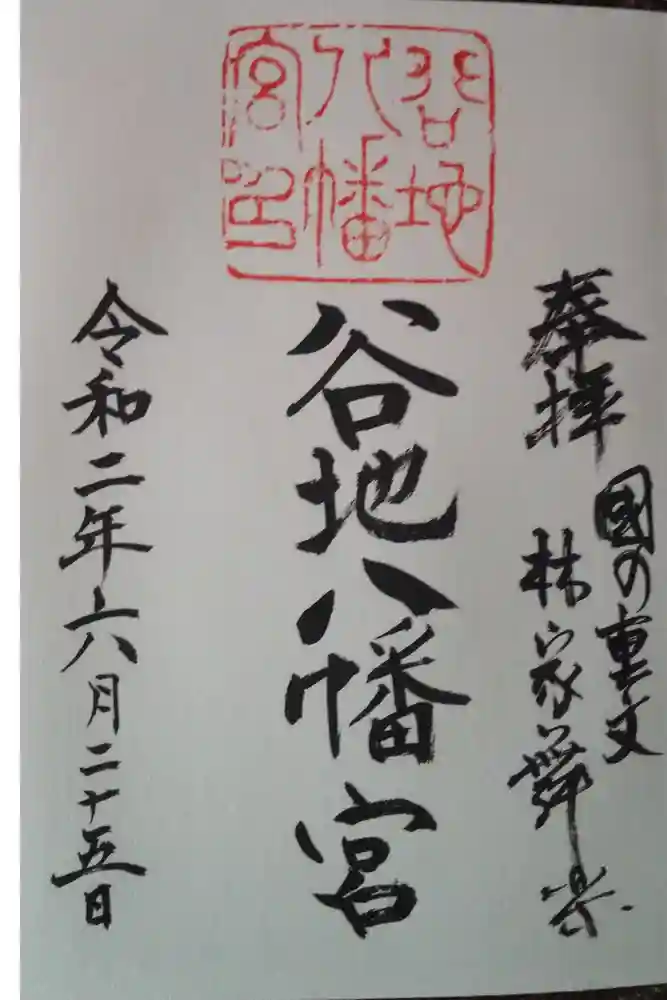 奉拝
國の重文
林家舞楽
谷地八幡宮
谷地
八幡
宮印
令和二年六月二十五日